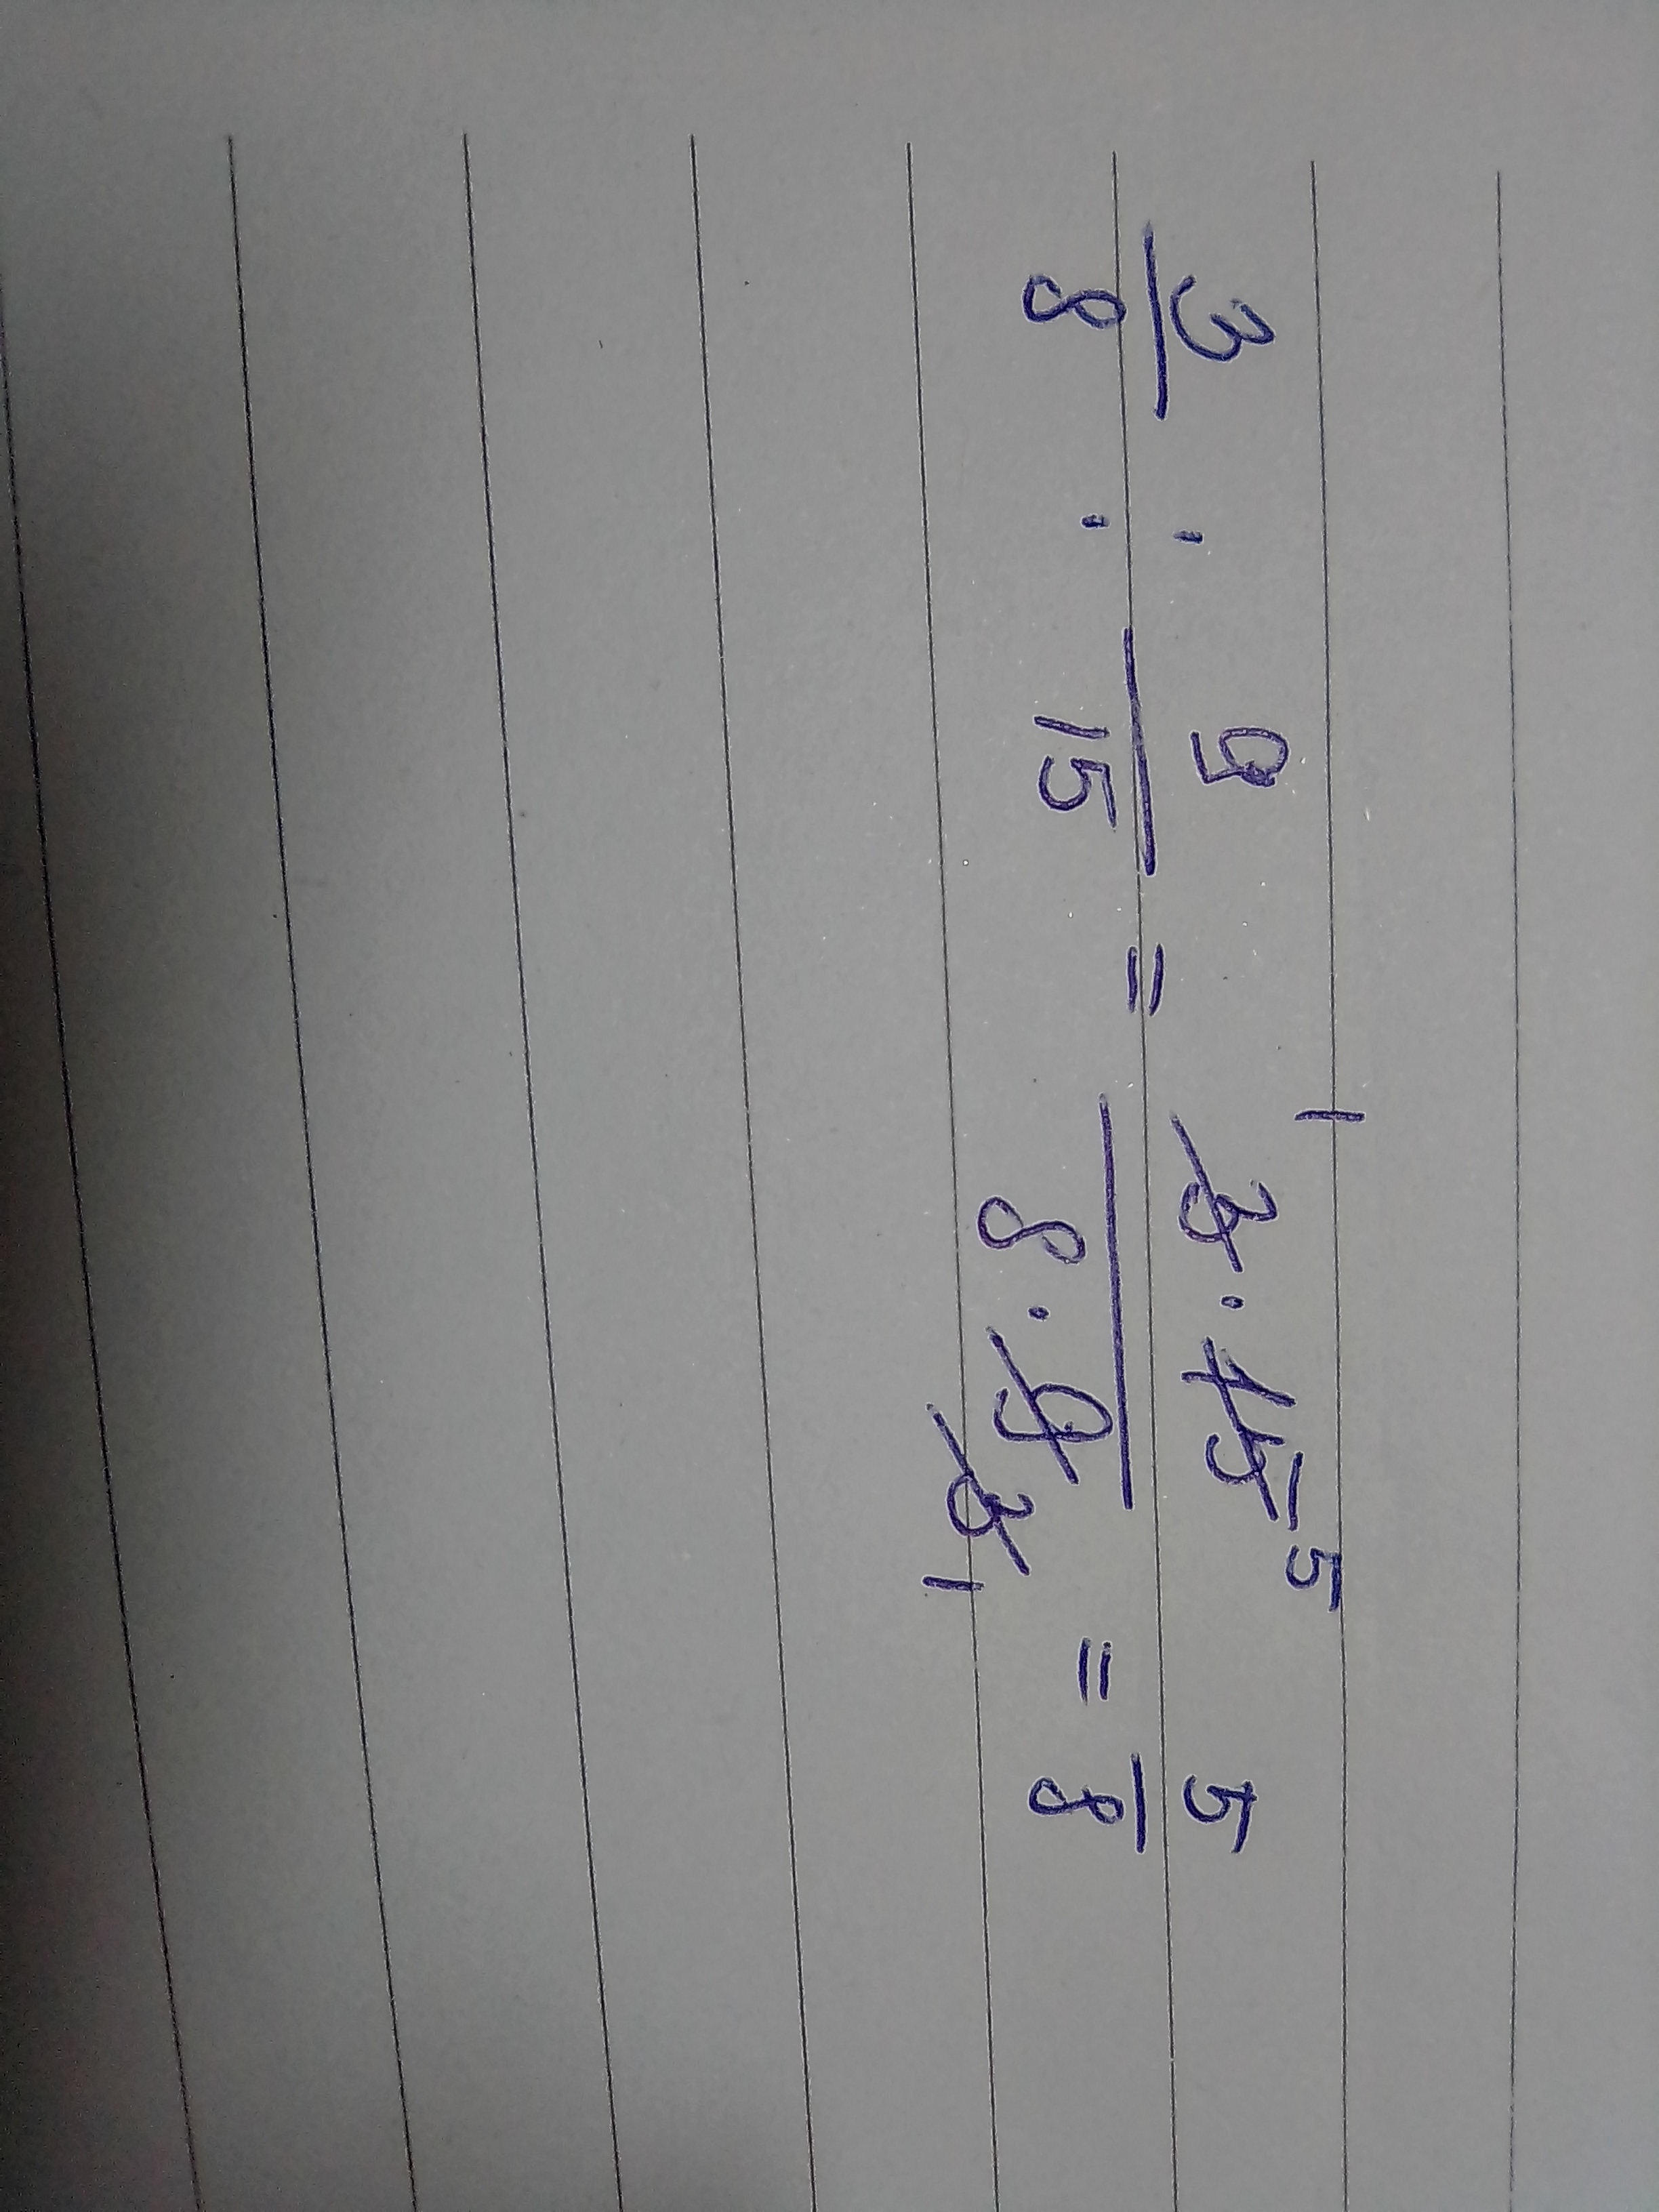 3/8 : 9/15 = (1 3 · 15 5)/(8 · 9 3 1) = 5/8